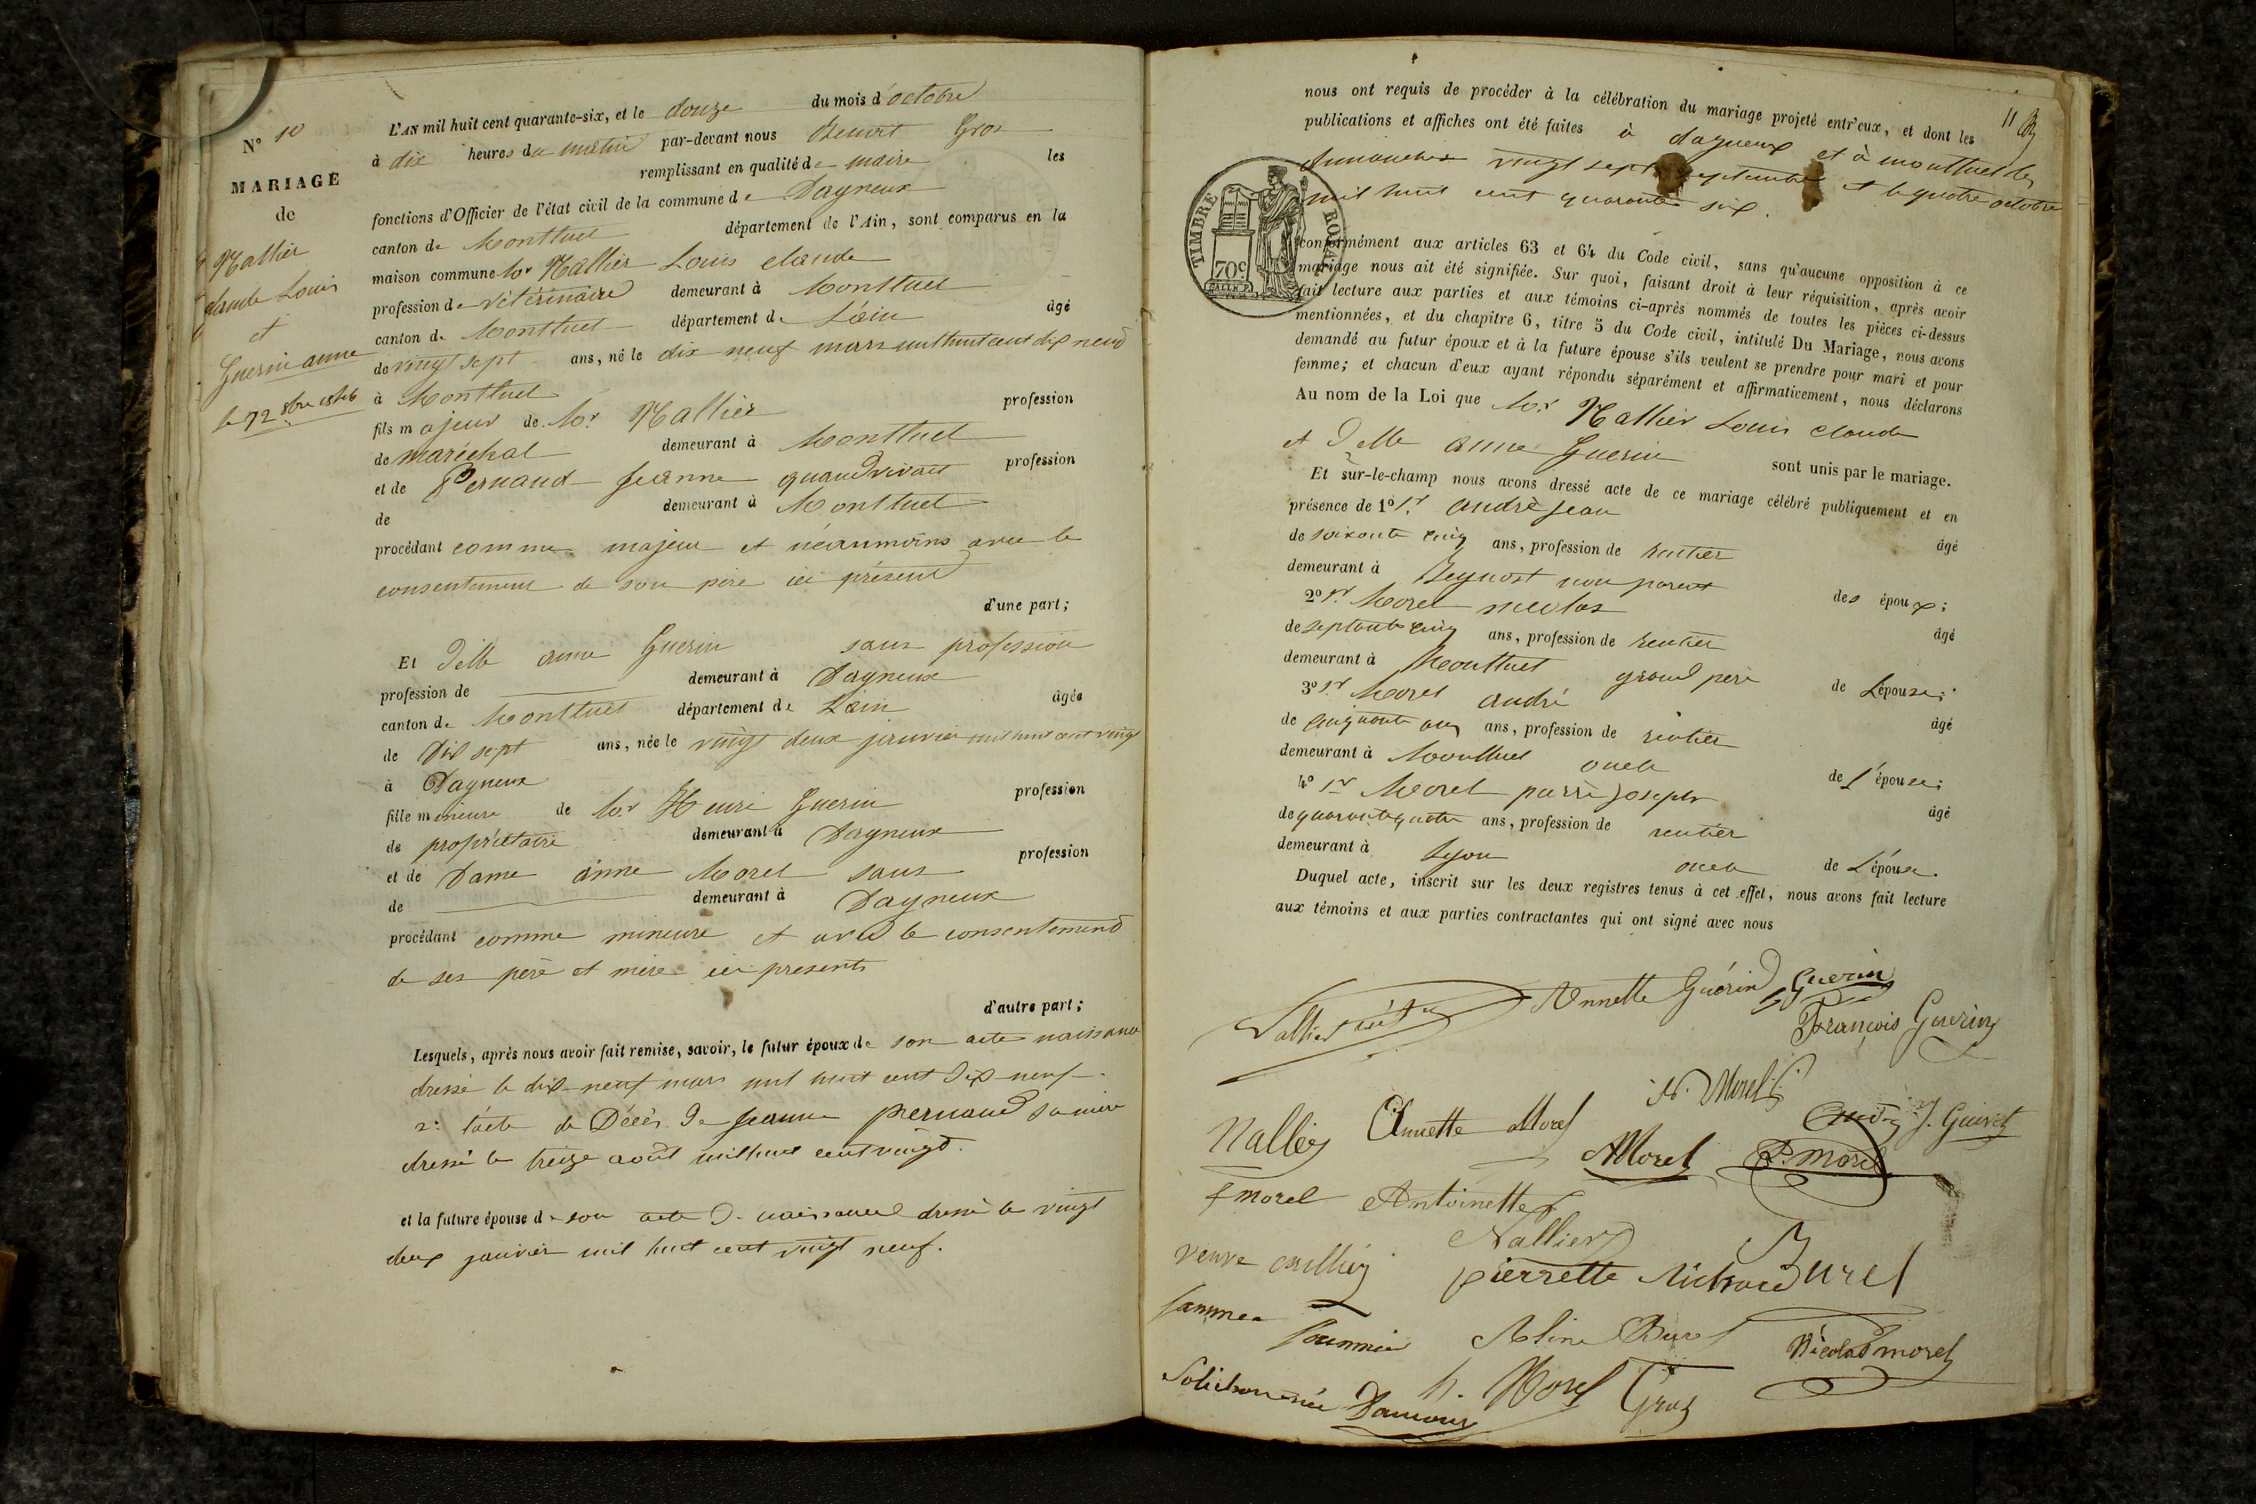 N° 10
MARIAGE
de
Nallier
claude Louis
et
Guerin anne
le 12 8bre 1846
L'AN mil huit cent quarante-six, et le douze du mois d'octobre
à dix heures du matin par-devant nous Benoit Gros
remplissant en qualité de maire les
fonctions d'Officier de l'état civil de la commune de Dagneux
canton de Montluel département de l'Ain, sont comparus en la
maison commune Mr Nallier Louis claude
profession de vétérinaire demeurant à Montluel
canton de Montluel département de L'ain âgé
de vingt sept ans, né le dix neuf mars mil huit cent dix neuf
à Montluel
fils majeur de Mr Nallier profession
de maréchal demeurant à Montluel
et de Pernaud Jeanne quand vivait profession
de demeurant à Montluel
procédant comme majeur et néanmoins avec le
consentement de son père ici présent
d'une part;
Et Delle anne Guerin sans profession
profession de demeurant à Dagneux
canton de Montluel département de L'ain âgée
de dix sept ans, née le vingt deux janvier mil huit cent vingt
à Dagneux
fille mineure de Mr Henri Guerin profession
de propriétaire demeurant à Dagneux
et de Dame anne Morel sans profession
de demeurant à Dagneux
procédant comme mineure et avec le consentement
de ses père et mère ici presents
d'autre part;
Lesquels, après nous avoir fait remise, savoir, le futur époux de son acte naissance
dressé le dix-neuf mars mil huit cent dix-neuf.
2° l'acte de Décès de Jeanne Pernaud sa mère
dressé le treize août mil huit cent vingt.
et la future épouse de son acte de naissance dressé le vingt
deux janvier mil huit cent vingt neuf.
11
nous ont requis de procéder à la célébration du mariage projeté entr'eux, et dont les
publications et affiches ont été faites à dagneux et à montluel les
dimanches vingt sept septembre et le quatre octobre
mil huit cent quarante six.
TIMBRE ROYAL
70c.
conformément aux articles 63 et 64 du Code civil, sans qu'aucune opposition à ce
mariage nous ait été signifiée. Sur quoi, faisant droit à leur réquisition, après avoir
fait lecture aux parties et aux témoins ci-après nommés de toutes les pièces ci-dessus
mentionnées, et du chapitre 6, titre 5 du Code civil, intitulé Du Mariage, nous avons
demandé au futur époux et à la future épouse s'ils veulent se prendre pour mari et pour
femme; et chacun d'eux ayant répondu séparément et affirmativement, nous déclarons
Au nom de la Loi que Mr Nallier Louis claude
et Delle anne Guerin sont unis par le mariage.
Et sur-le-champ nous avons dressé acte de ce mariage célébré publiquement et en
présence de 1° Sr andré jean âgé
de soixante cinq ans, profession de rentier
demeurant à Beynost non parent des époux;
2° Sr Morel nicolas âgé
de septante cinq ans, profession de rentier
demeurant à Montluel grand père de L'épouse;
3° Sr Morel andré âgé
de cinquante ans, profession de rentier
demeurant à Montluel oncle de l'épouse;
4° Sr Morel pierre joseph âgé
de quarante quatre ans, profession de rentier
demeurant à Lyon oncle de L'épouse.
Duquel acte, inscrit sur les deux registres tenus à cet effet, nous avons fait lecture
aux témoins et aux parties contractantes qui ont signé avec nous
Nallier vétre Annette Guérin Guerin
François Guerin
N. Morel
Nallier Annette Morel
AMorel P. Morel
f morel Antoinette
Nallier
veuve
pierrette Burel
Aline Burel Nicolas morel
née Damour h. Morel Gros